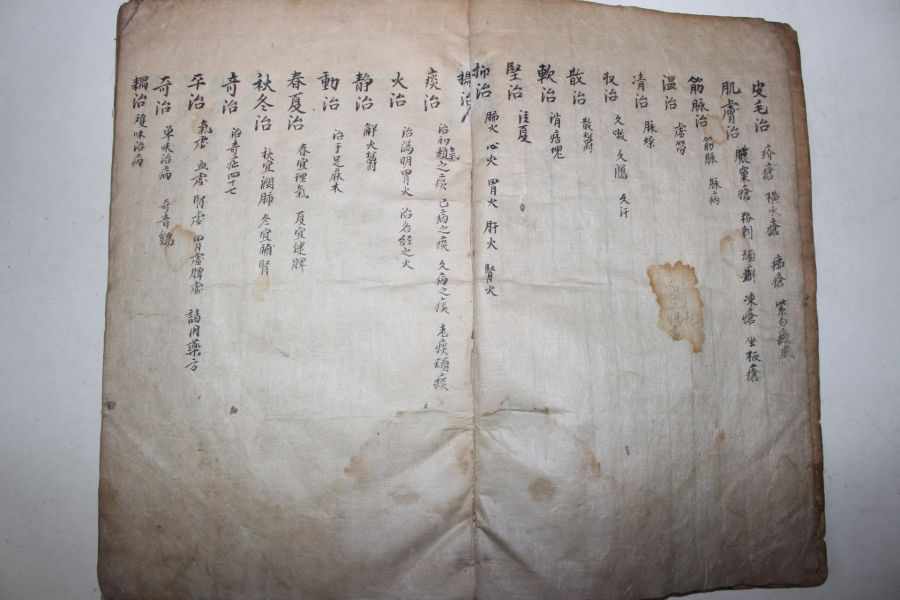 皮毛治 疥瘡 橫水瘡 痱瘡 紫白癜風
肌膚治 膿窠瘡 粉刺 頑癬 凍瘡 坐板瘡
筋脉治 筋脉 脉病
温治 虛勞
清治 脉燥
収治 久嗽 久瀉 久汗
散治 散鬱
軟治 消痞塊
堅治 注夏
抑治 肺火 心火 胃火 肝火 腎火
揚治
痰治 治初起之氣痰 已病之痰 久病之痰 老痰頑痰
火治 治陽明胃火 治各經之火
静治 解火鬱
動治 治手足麻木
春夏治 春宜理氣 夏宜健脾
秋冬治 秋宜潤肺 冬宜補腎
奇治 治奇症四十七
平治 氣虛 血虛 腎虛 胃虛脾虛 諸用藥方
奇治 單味治病
耦治 雙味治病